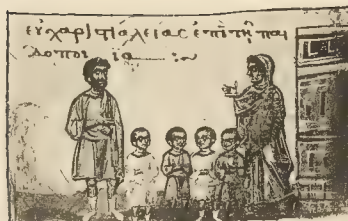 εὐχαριστία λείας ἐπὶ τῇ παι
δοποιΐα